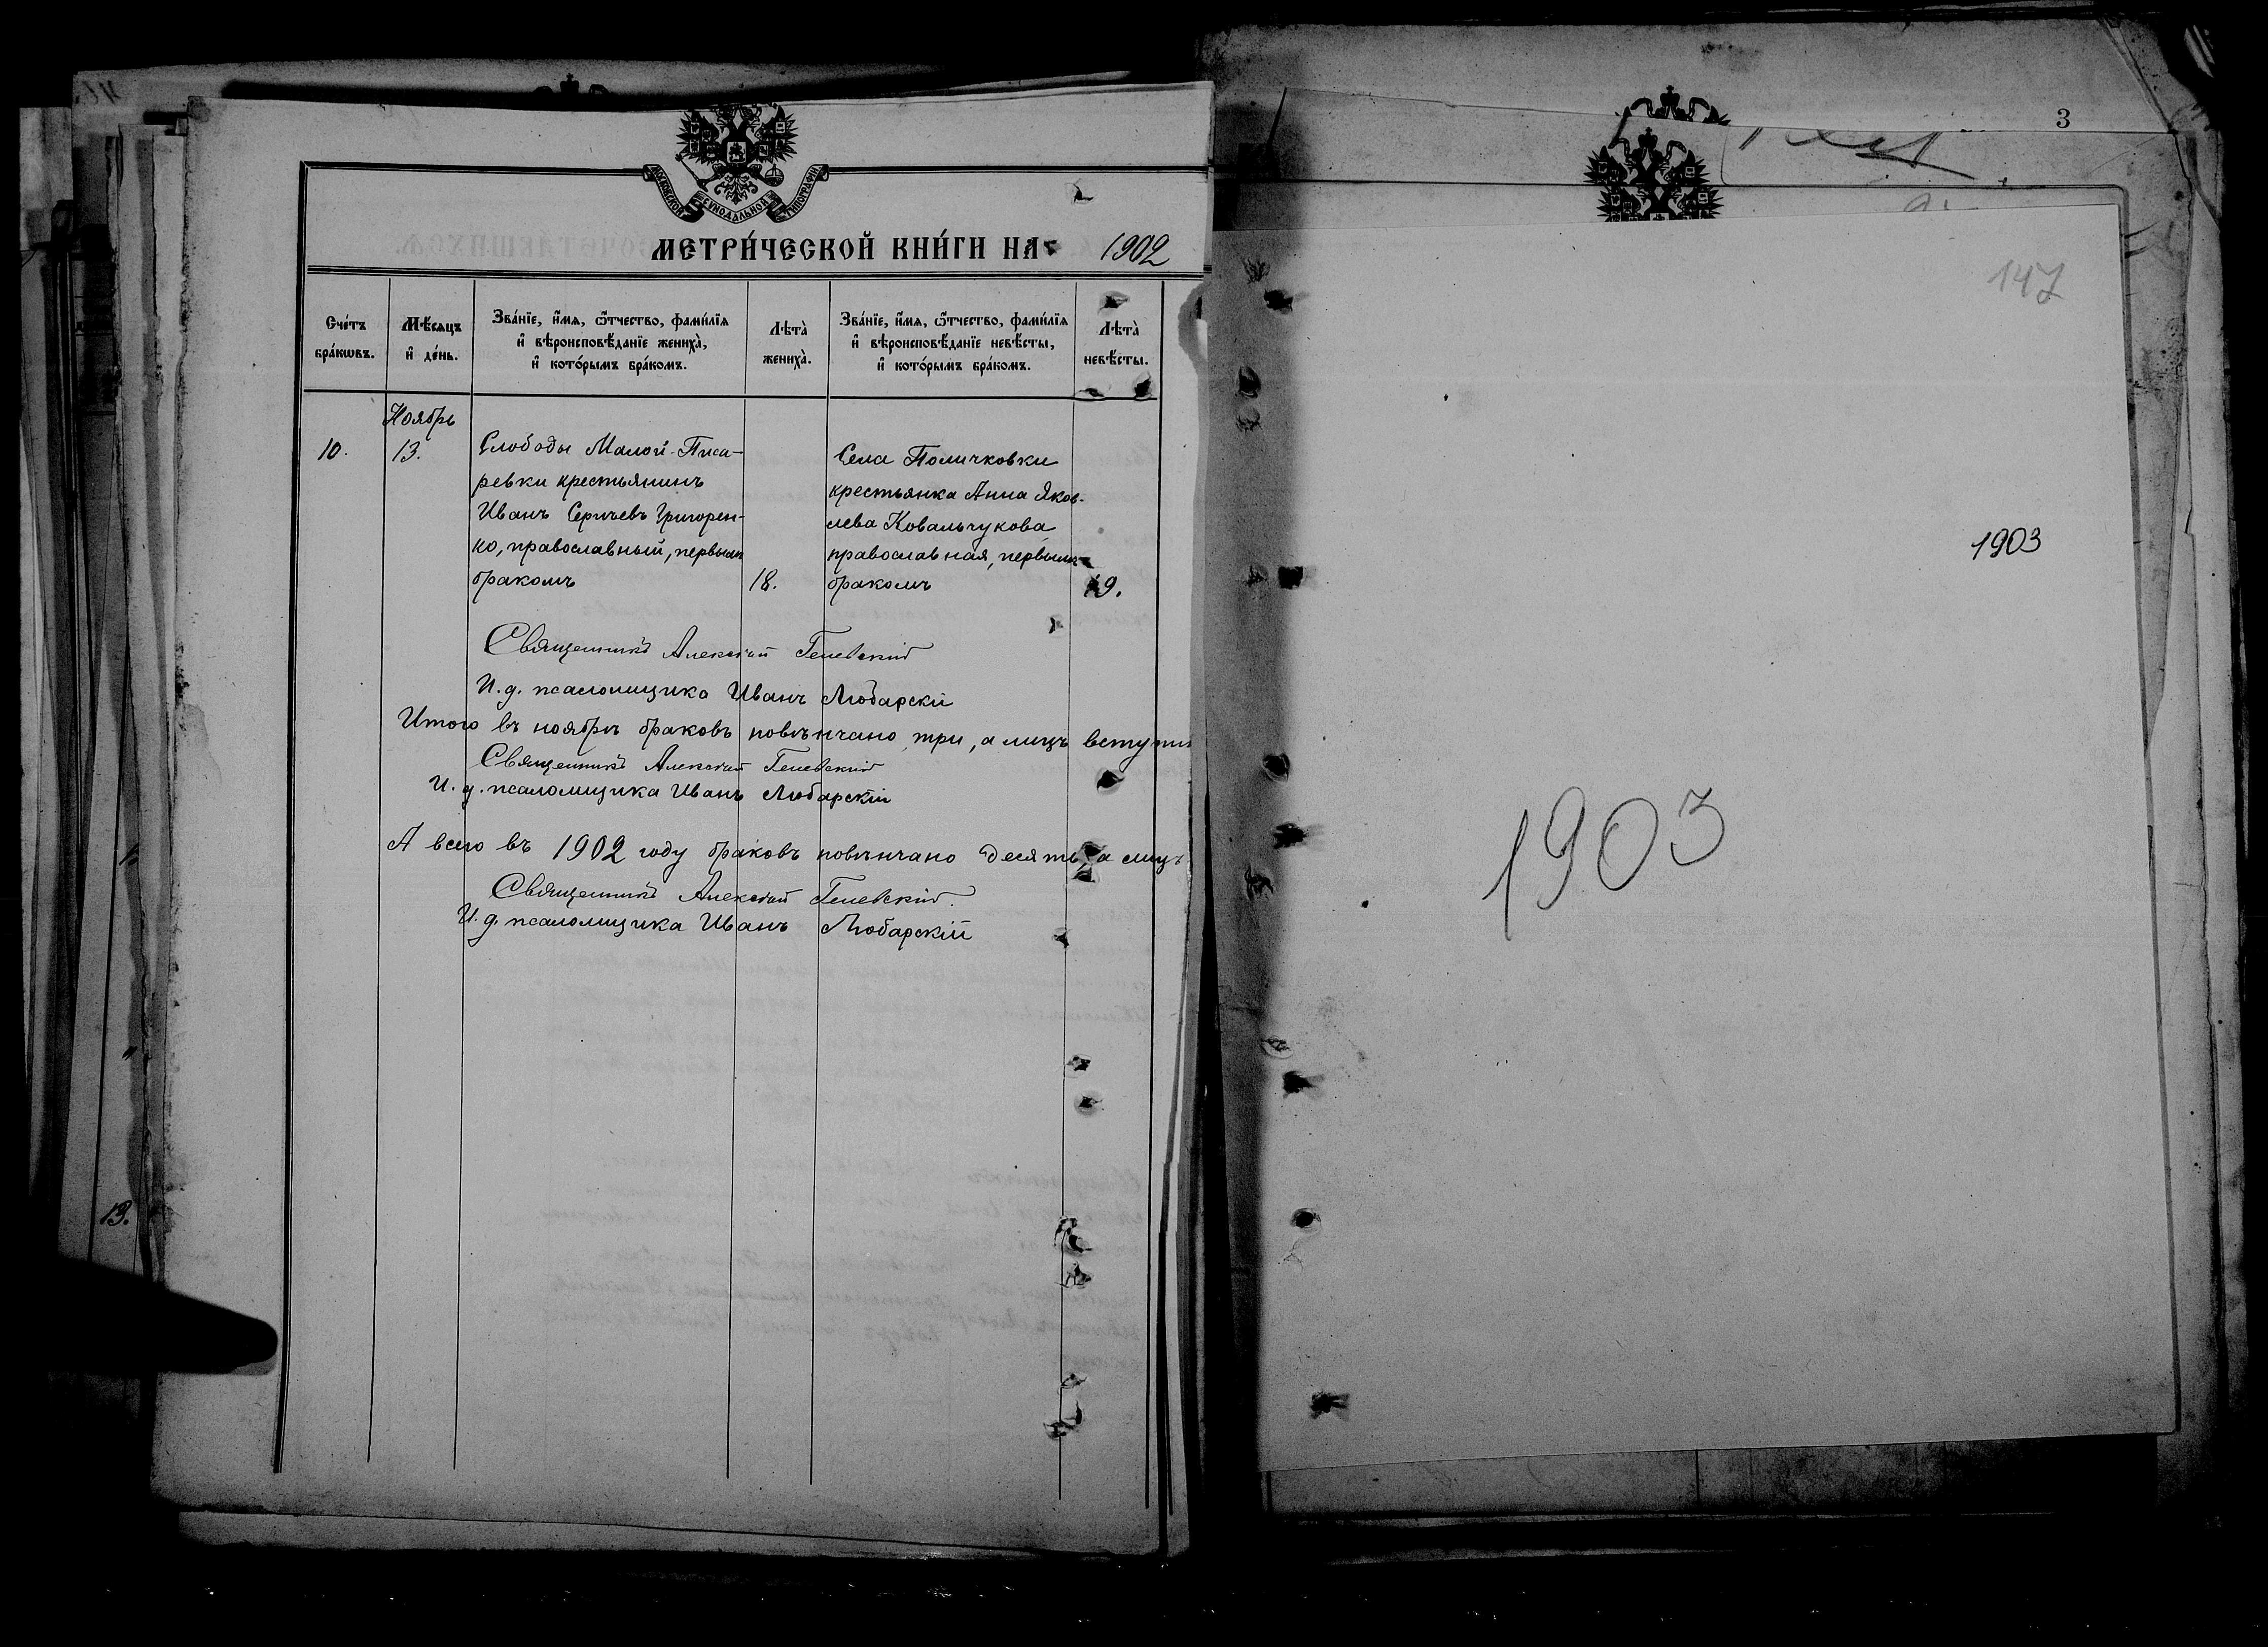 МОСКОВСКОЙ СѴНОДАЛЬНОЙ ТИПОГРАФІИ
МЕТРИ́ЧЕСКОЙ КНИ́ГИ НА 1902
Сче́тъ бра́кωвъ.
Мѣ́сяцъ и҆ де́нь.
Зва́нїе, и҆́мѧ, ѻ҆́тчество, фами́лїѧ и҆ вѣроисповѣ́данїе жениха̀, и҆ кото́рымъ бра́комъ.
Лѣта̀ жениха̀.
Зва́нїе, и҆́мѧ, ѻ҆́тчество, фами́лїѧ и҆ вѣроисповѣ́данїе невѣ́сты, и҆ кото́рымъ бра́комъ.
Лѣта̀ невѣ́сты.
Ноябрь
10.
13.
Слободы Малой-Писа-
ревки крестьянинъ
Иванъ Сергѣевъ Григорен-
ко, православный, первымъ
бракомъ
18.
Села Поличковки
крестьянка Анна Яков-
лева Ковальчукова
православная, первымъ
бракомъ
19.
Священникъ Алексѣй
И. д. псаломщика Иванъ Любарскій
Итого въ ноябрѣ браковъ повѣнчано три, а лицъ вступи
Священникъ Алексѣй
И. д. псаломщика Иванъ Любарскій
А всего въ 1902 году браковъ повѣнчано десять, а лицъ
Священникъ Алексѣй
И. д. псаломщика Иванъ Любарскій
13.
3
147
1903
1903